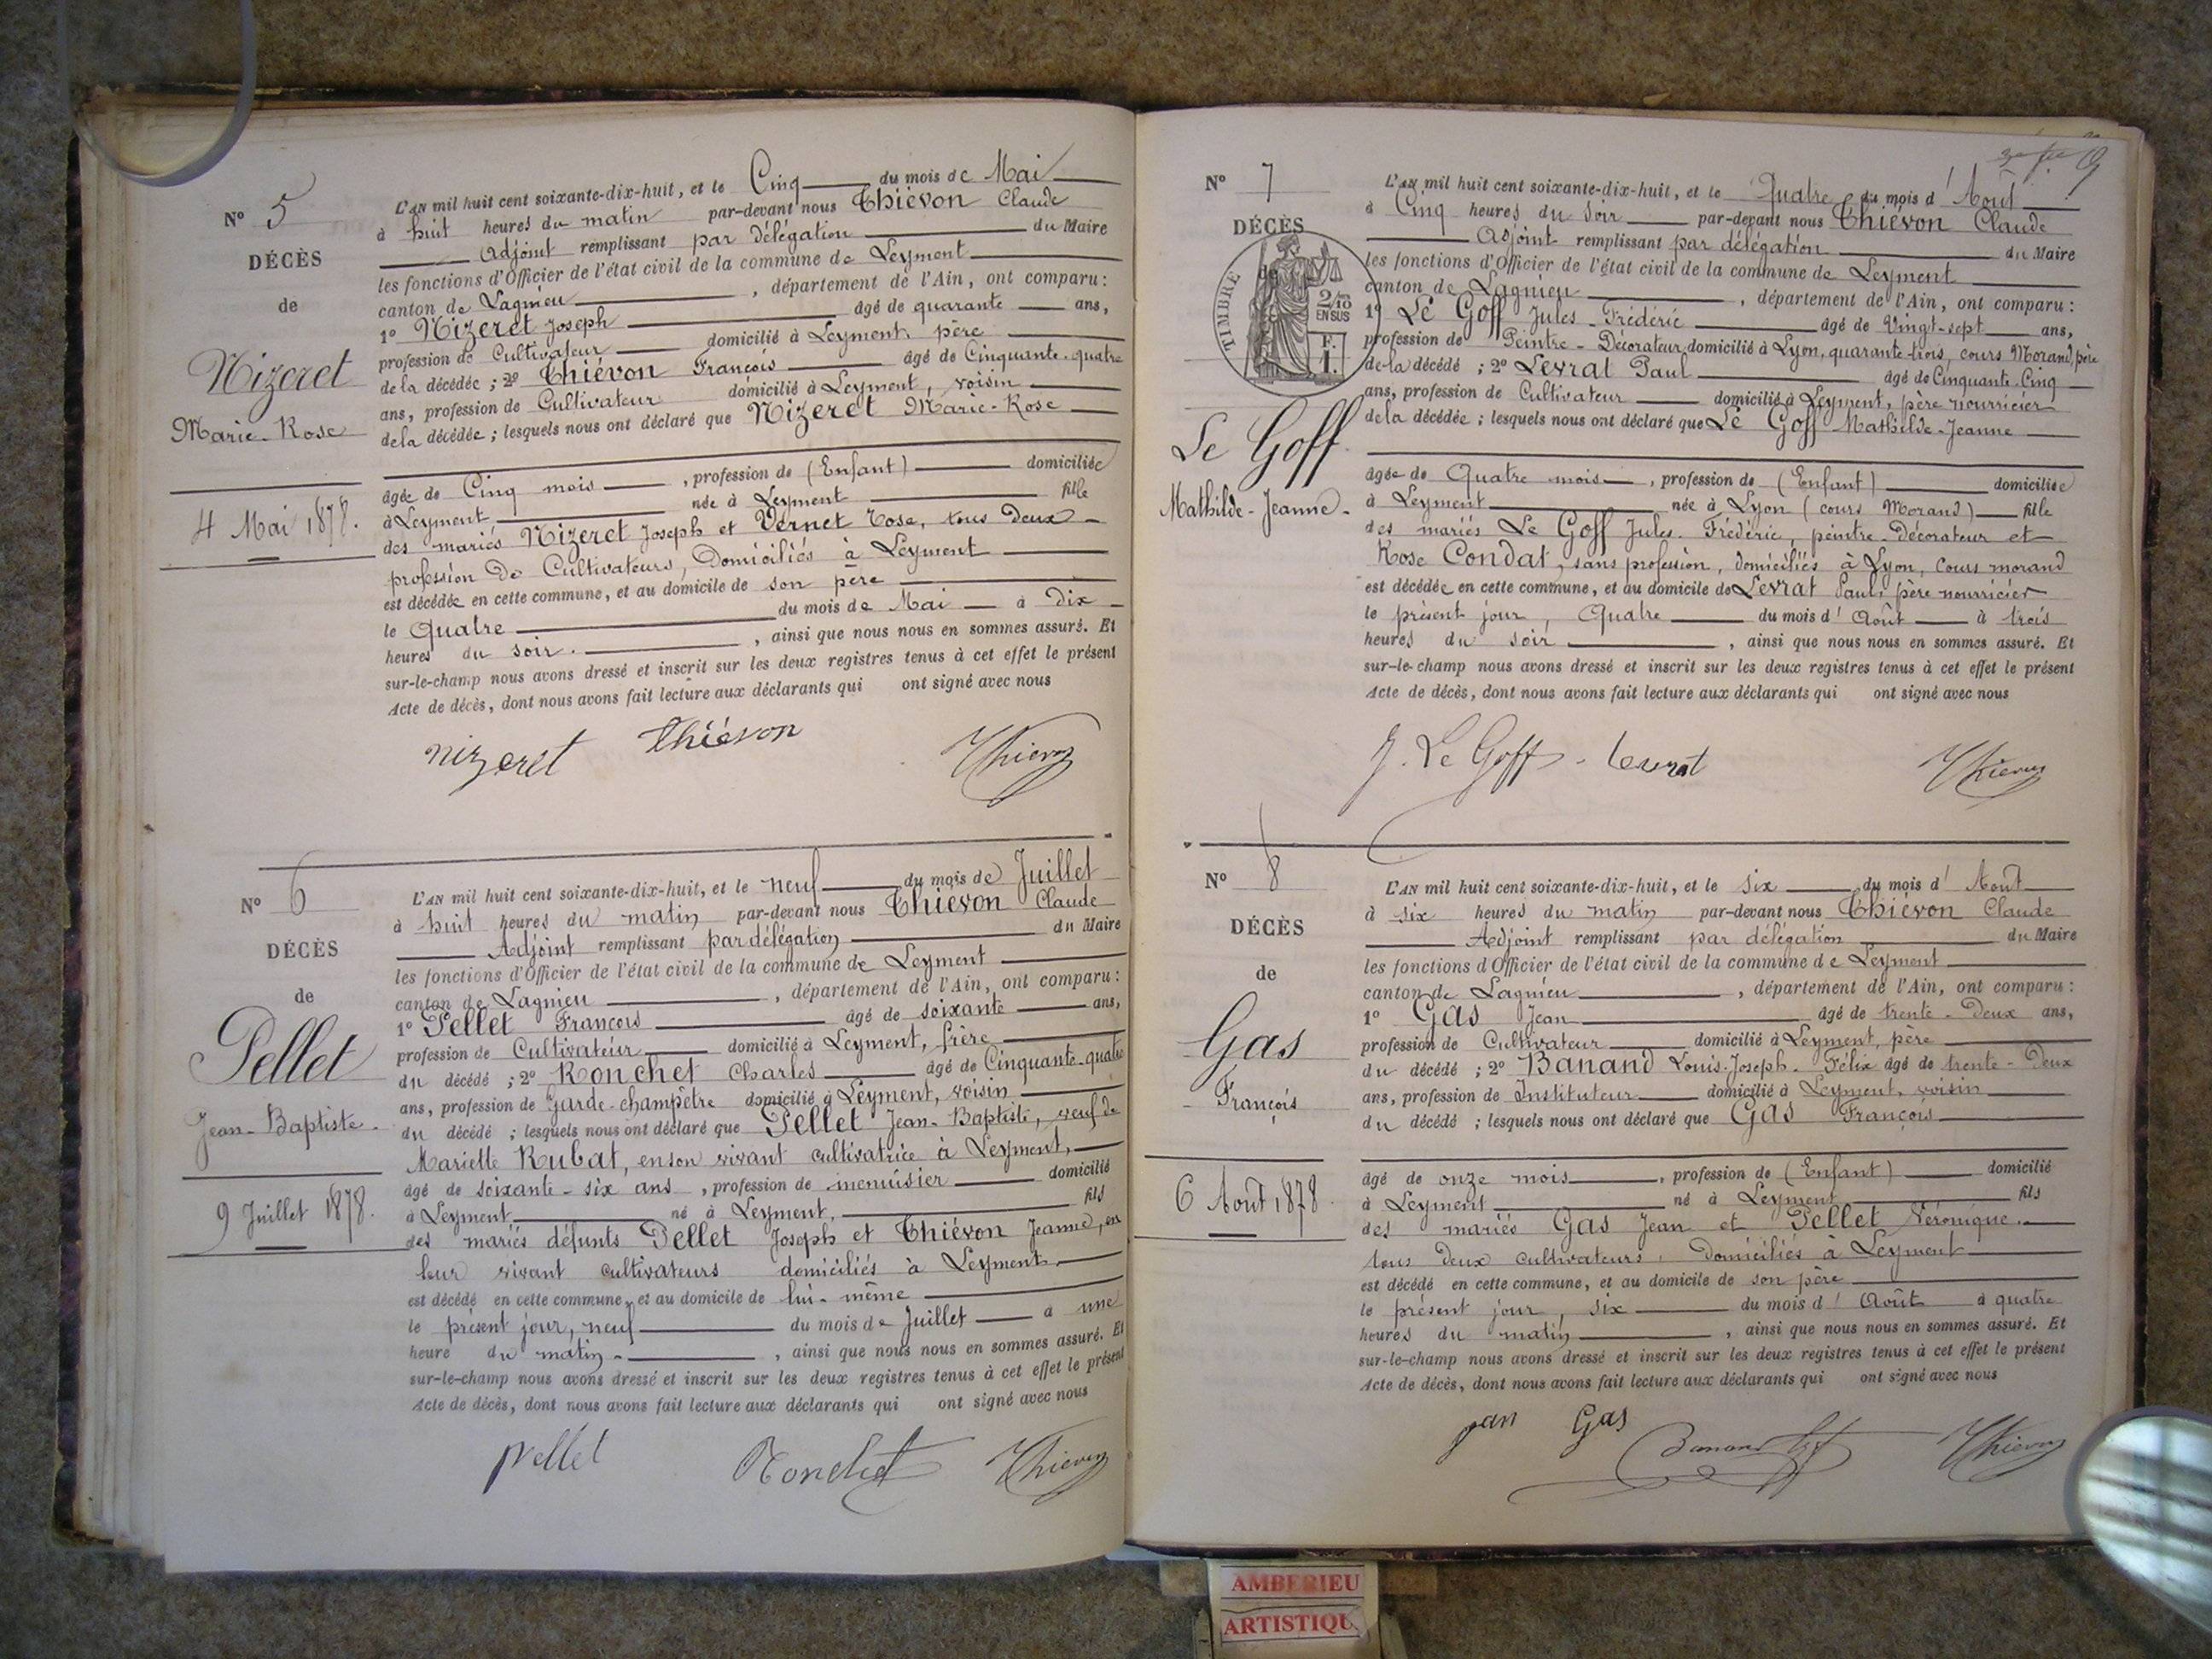 N° 5
DÉCÈS
de
Nizeret
Marie-Rose
4 Mai 1878.
L'AN mil huit cent soixante-dix-huit, et le Cinq du mois de Mai
à huit heures du matin par-devant nous Thiévon Claude
Adjoint remplissant par délégation du Maire
les fonctions d'Officier de l'état civil de la commune de Leyment
canton de Lagnieu, département de l'Ain, ont comparu:
1° Nizeret Joseph âgé de quarante ans,
profession de Cultivateur domicilié à Leyment, père
de la décédée; 2° Thiévon François âgé de Cinquante-quatre
ans, profession de Cultivateur domicilié à Leyment, voisin
de la décédée; lesquels nous ont déclaré que Nizeret Marie-Rose
âgée de Cinq mois, profession de (Enfant) domiciliée
à Leyment, née à Leyment fille
des mariés Nizeret Joseph et Vernet Rose, tous deux
profession de Cultivateurs, Domiciliés à Leyment
est décédée en cette commune, et au domicile de son père
le Quatre du mois de Mai à Dix
heures du soir., ainsi que nous nous en sommes assuré. Et
sur-le-champ nous avons dressé et inscrit sur les deux registres tenus à cet effet le présent
Acte de décès, dont nous avons fait lecture aux déclarants qui ont signé avec nous
Nizeret Thiévon Thiévon
N° 6
DÉCÈS
de
Pellet
Jean-Baptiste.
9 Juillet 1878.
L'AN mil huit cent soixante-dix-huit, et le neuf du mois de Juillet
à huit heures du matin par-devant nous Thiévon Claude
Adjoint remplissant par délégation du Maire
les fonctions d'Officier de l'état civil de la commune de Leyment
canton de Lagnieu, département de l'Ain, ont comparu:
1° Pellet François âgé de soixante ans,
profession de Cultivateur domicilié à Leyment, frère
du décédé; 2° Ronchet Charles âgé de Cinquante-quatre
ans, profession de Garde-champêtre domicilié à Leyment, voisin
du décédé; lesquels nous ont déclaré que Pellet Jean-Baptiste, veuf de
Mariette Rubat, en son vivant cultivatrice à Leyment,
âgé de soixante-six ans, profession de menuisier domicilié
à Leyment né à Leyment, fils
des mariés défunts Pellet Joseph et Thiévon Jeanne, en
leur vivant cultivateurs domiciliés à Leyment
est décédé en cette commune, et au domicile de lui-même
le présent jour, neuf du mois de Juillet à une
heure du matin, ainsi que nous nous en sommes assuré. Et
sur-le-champ nous avons dressé et inscrit sur les deux registres tenus à cet effet le présent
Acte de décès, dont nous avons fait lecture aux déclarants qui ont signé avec nous
Pellet Ronchet Thiévon
9
N° 7
DÉCÈS
de
TIMBRE
2/10 EN SUS
F. 1.
Le Goff
Mathilde-Jeanne-
L'AN mil huit cent soixante-dix-huit, et le Quatre du mois d'Août
à Cinq heures du Soir par-devant nous Thiévon Claude
Adjoint remplissant par délégation du Maire
les fonctions d'Officier de l'état civil de la commune de Leyment
canton de Lagnieu, département de l'Ain, ont comparu:
1° Le Goff Jules-Frédéric âgé de Vingt-sept ans,
profession de Peintre-Décorateur domicilié à Lyon, quarante-trois, cours Morand, père
de la décédé; 2° Levrat Paul âgé de Cinquante-Cinq
ans, profession de Cultivateur domicilié à Leyment, père nourricier
de la décédée; lesquels nous ont déclaré que Le Goff Mathilde-Jeanne
âgée de Quatre mois, profession de (Enfant) domiciliée
à Leyment née à Lyon (cours Morand) fille
des mariés Le Goff Jules-Frédéric, peintre-Décorateur et
Rose Condat, sans profession, domiciliés à Lyon, Cours morand
est décédée en cette commune, et au domicile de Levrat Paul, père nourricier
le présent jour, Quatre du mois d'Août à trois
heures du soir, ainsi que nous nous en sommes assuré. Et
sur-le-champ nous avons dressé et inscrit sur les deux registres tenus à cet effet le présent
Acte de décès, dont nous avons fait lecture aux déclarants qui ont signé avec nous
J. Le Goff - Levrat Thiévon
N° 8
DÉCÈS
de
Gas
François
6 Août 1878.
L'AN mil huit cent soixante-dix-huit, et le six du mois d'Août
à six heures du matin par-devant nous Thiévon Claude
Adjoint remplissant par délégation du Maire
les fonctions d'Officier de l'état civil de la commune de Leyment
canton de Lagnieu, département de l'Ain, ont comparu:
1° Gas Jean âgé de trente-Deux ans,
profession de Cultivateur domicilié à Leyment, père
du décédé; 2° Banand Louis-Joseph-Félix âgé de trente-Deux
ans, profession de Instituteur domicilié à Leyment, voisin
du décédé; lesquels nous ont déclaré que Gas François
âgé de onze mois, profession de (Enfant) domicilié
à Leyment né à Leyment fils
des mariés Gas Jean et Pellet Véronique.
tous deux cultivateurs, Domiciliés à Leyment
est décédé en cette commune, et au domicile de son père
le présent jour, six du mois d'Août à quatre
heures du matin, ainsi que nous nous en sommes assuré. Et
sur-le-champ nous avons dressé et inscrit sur les deux registres tenus à cet effet le présent
Acte de décès, dont nous avons fait lecture aux déclarants qui ont signé avec nous
jan Gas Banand Thiévon
AMBERIEU
ARTISTIQU